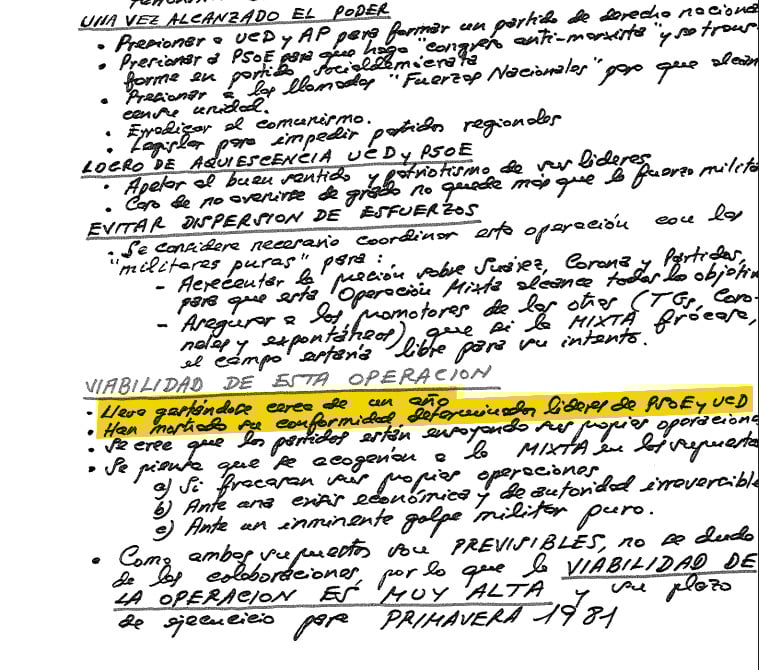 UNA VEZ ALCANZADO EL PODER
• Presionar a UCD y AP para formar un partido de derecha naciona
• Presionar a PSOE para que haga "congreso anti-marxista" y se trans-
forme en partido socialdemócrata
• Presionar a los llamados "Fuerzas Nacionales" para que alcan
cen su unidad.
• Erradicar el comunismo.
• Legislar para impedir partidos regionales
LOGRO DE AQUIESCENCIA UCD y PSOE
• Apelar al buen sentido y patriotismo de sus lideres
• Caso de no avenirse de grado no queda más que la fuerza milita
EVITAR DISPERSION DE ESFUERZOS
• Se considera necesario coordinar esta operación con las
"militares puras" para:
- Acrecentar la presión sobre Suárez, Corona y Partidos,
para que esta Operación Mixta alcance todos los objetiv
- Asegurar a los promotores de las otras (TGs, Coro-
neles y expontáneos) que si la MIXTA fracase,
el campo estaría libre para su intento.
VIABILIDAD DE ESTA OPERACION
• Lleva gestándose cerca de un año
• Han mostrado su conformidad determinados lideres de PSOE y UCD
• Se cree que los partidos están ensayando sus propias operacione
• Se piensa que se acogerían a la MIXTA en los supuesto
a) Si fracasan sus propias operaciones
b) Ante una crisis económica y de autoridad irreversible
c) Ante un inminente golpe militar puro.
• Como ambos supuestos son PREVISIBLES, no se duda
de las colaboraciones, por lo que la VIABILIDAD DE
LA OPERACION ES MUY ALTA y su plazo
de ejecución para PRIMAVERA 1981